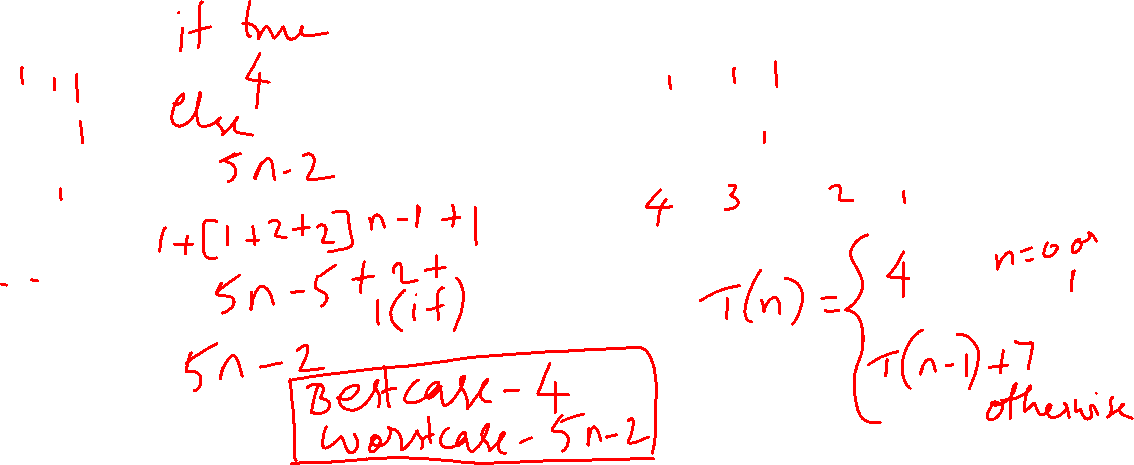 if true
4
Else
5n-2
1+[1+2+2]n-1+1
5n-5+2+
1(if)
5n-2
Bestcase-4
worstcase-5n-2
1 1 1
1
1
1 1 1
1
4 3 2 1
T(n) = { 4 n=0 or
1
T(n-1)+7
otherwise